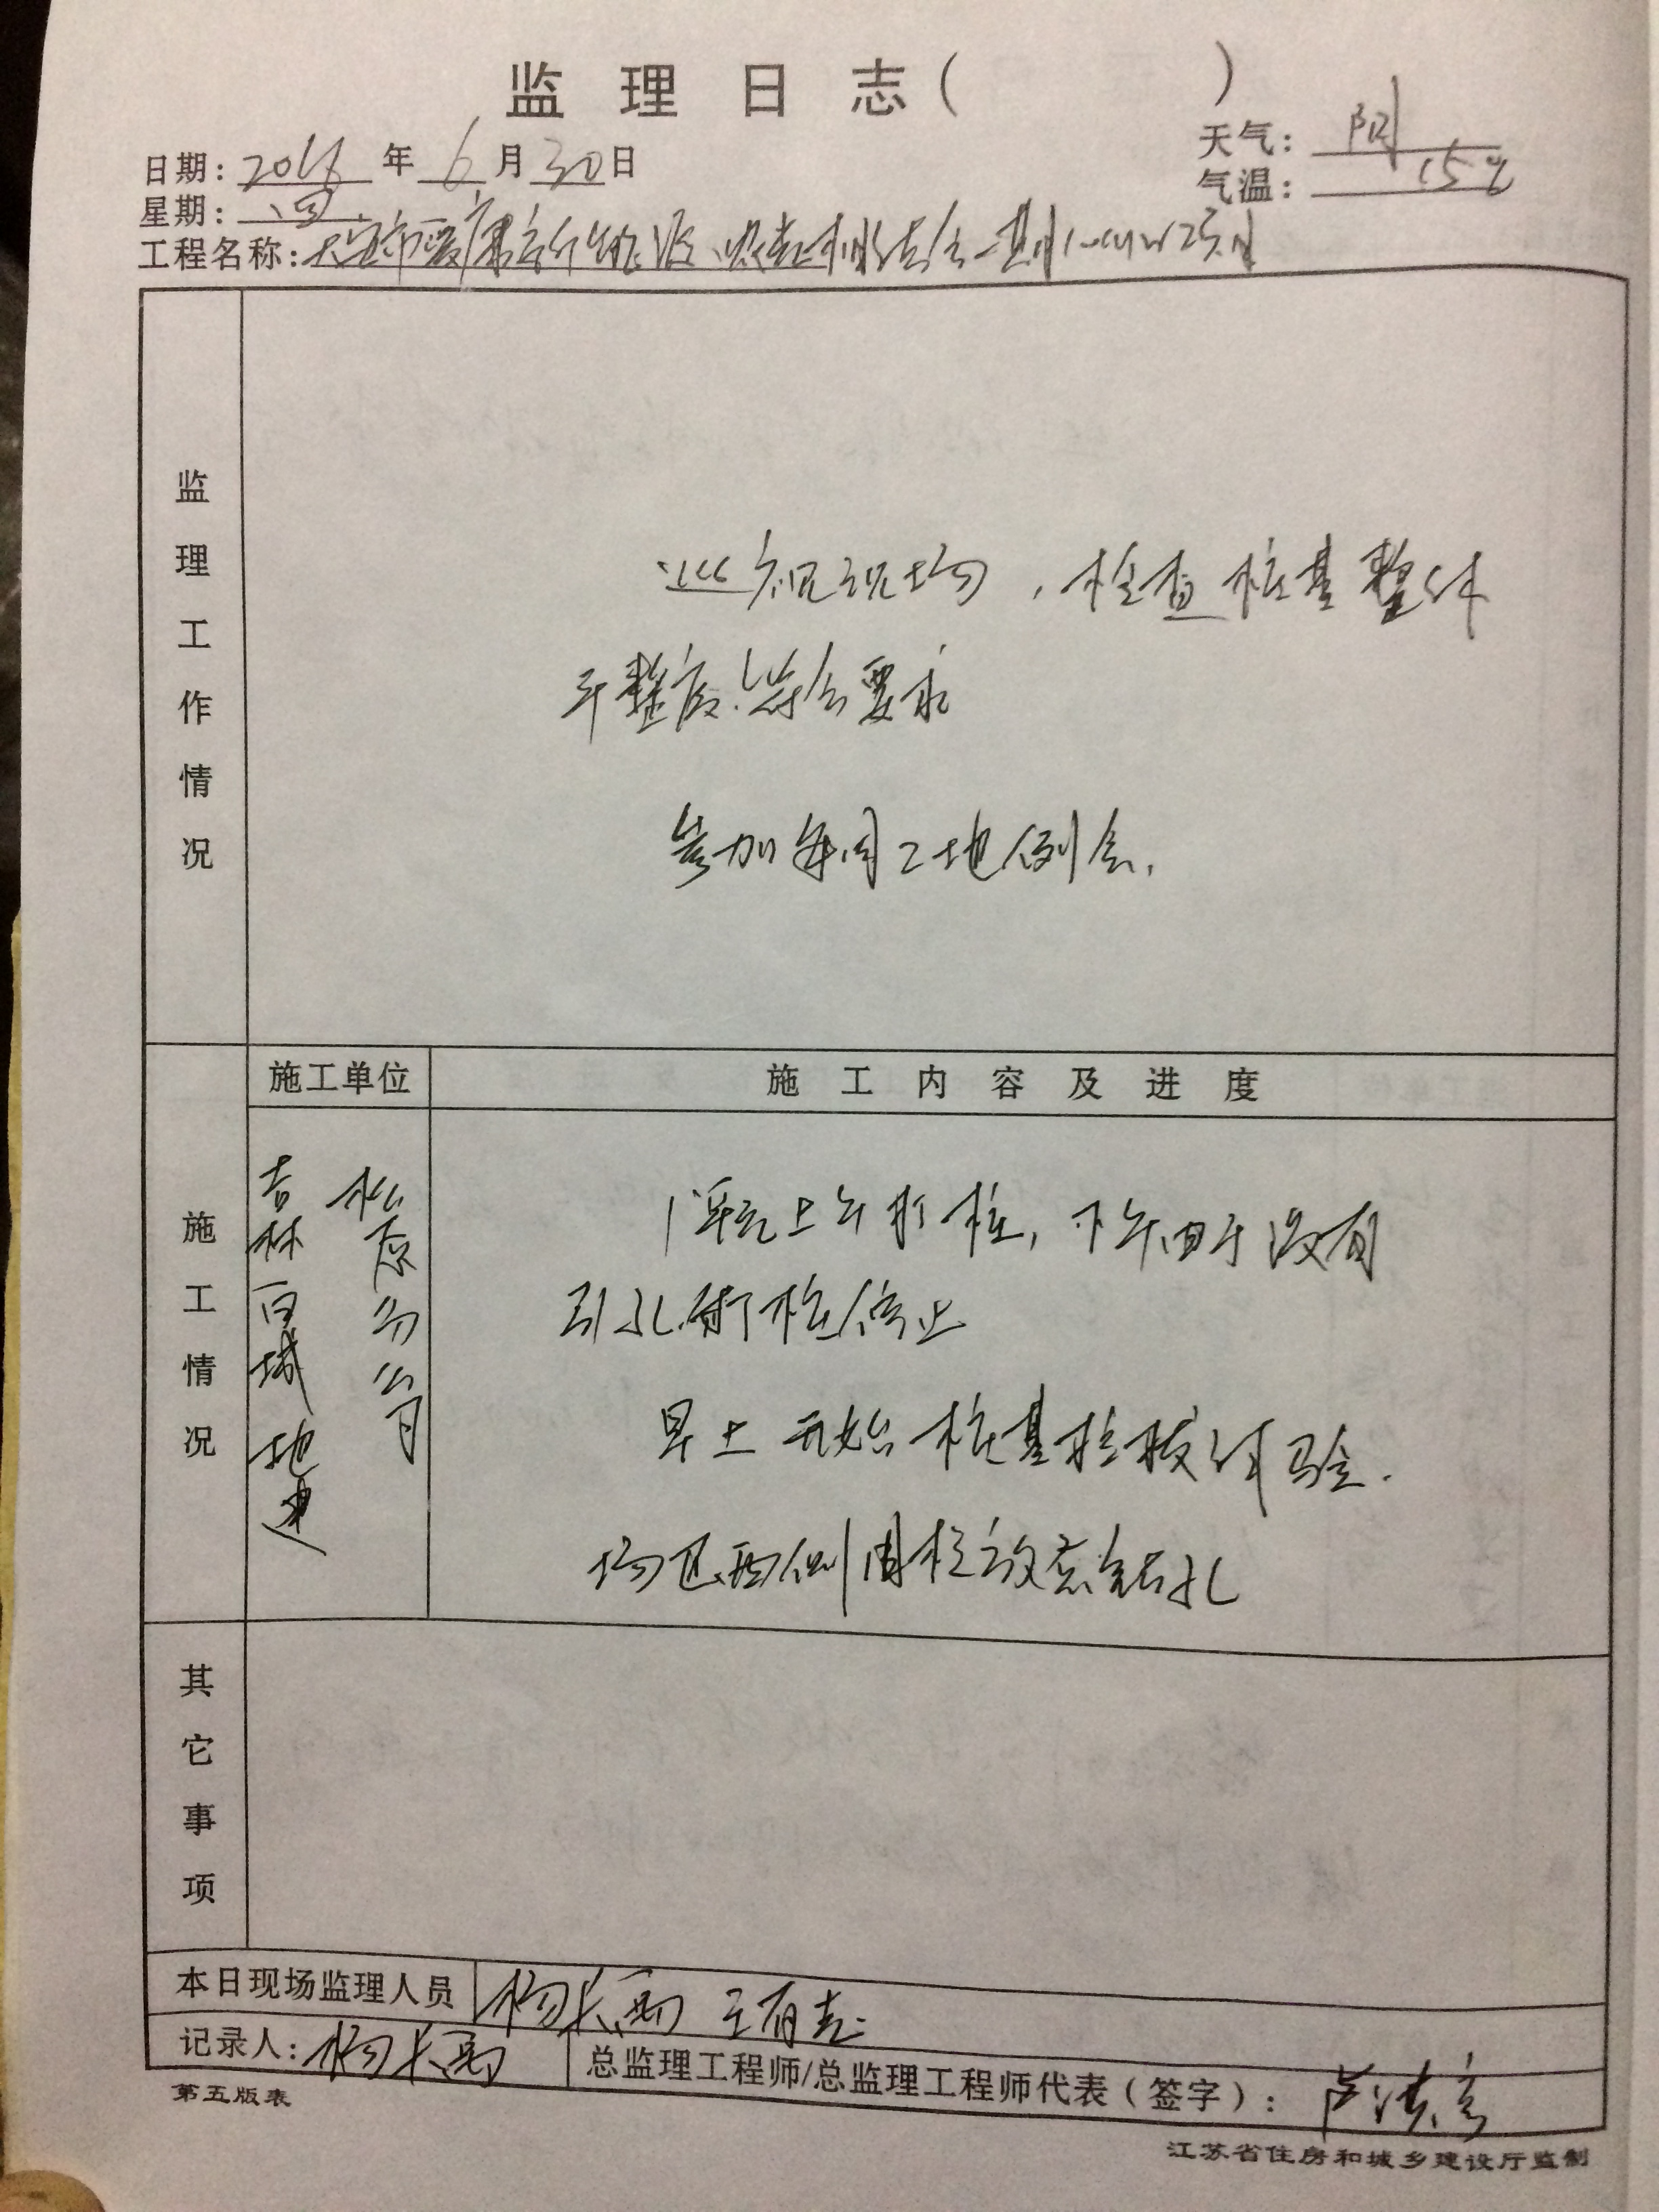 监理日志（ ）
日期：2016年6月30日
天气：阴
星期：四
气温：15℃
工程名称：大安市爱康新能源
监理工作情况
巡视现场，检查桩基整体
平整度，符合要求
参加每周工地例会.
施工情况
施工单位
施工内容及进度
吉林百城地建
松原分公司
上午打桩，下午由于没有
引孔，打桩停止
早上开始桩基检拔试验.
场区西侧围栏放线钻孔
其它事项
本日现场监理人员 杨长雨 王有志
记录人：杨长雨
总监理工程师/总监理工程师代表（签字）：
第五版表
江苏省住房和城乡建设厅监制